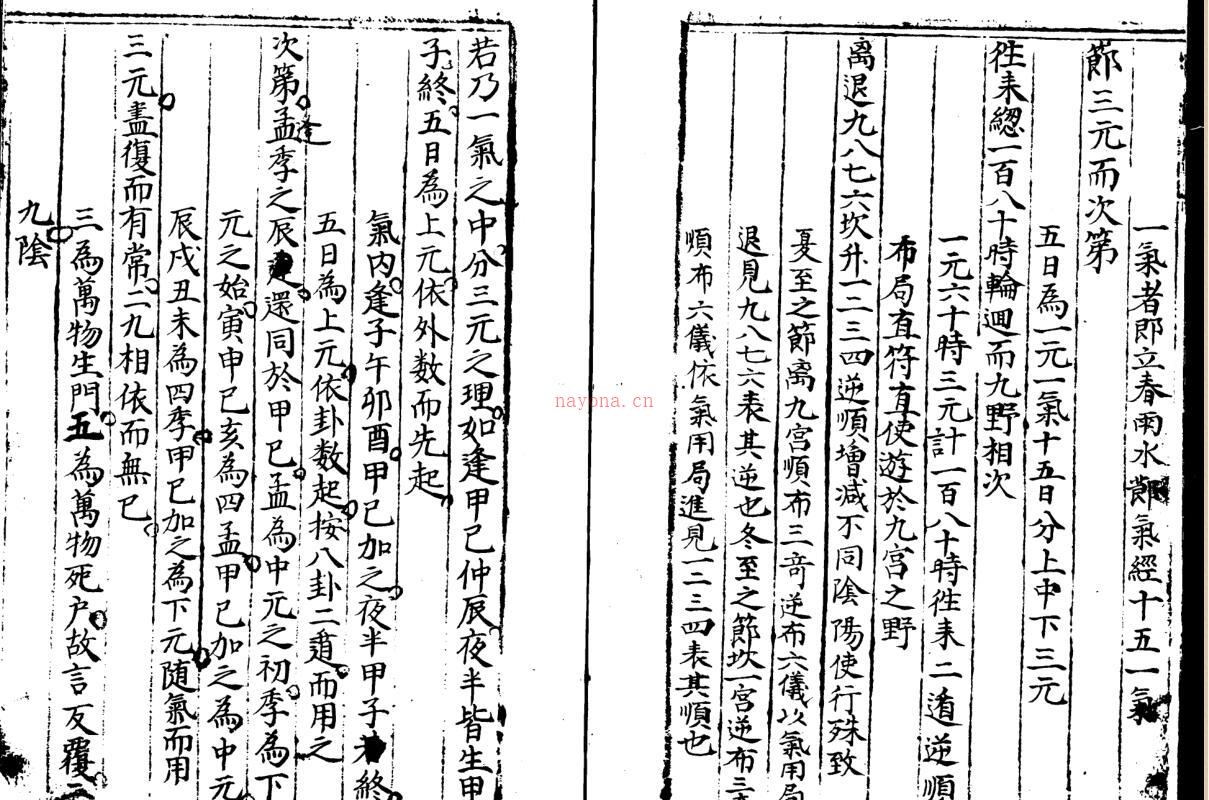 一氣者即立春雨水節氣經十五一氣
節三元而次第
五日為一元一氣十五日分上中下三元
徃来緫一百八十時輪迴而九野相次
一元六十時三元計一百八十時徃来二遁逆順
布局直符直使遊於九宮之野
离退九八七六坎升一二三四逆順增減不同陰陽使行殊致
夏至之節离九宮順布三竒逆布六儀以氣用局
退見九八七六表其逆也冬至之節坎一宮逆布三
順布六儀依氣用局進見一二三四表其順也
若乃一氣之中分三元之理如逢甲己仲辰夜半皆生甲
子終五日為上元依外数而先起
氣內逢子午卯酉甲己加之夜半甲子終
五日為上元依卦数起按八卦二遁而用之
次第逢孟季之辰還同於甲己孟為中元之初季為下
元之始寅申巳亥為四孟甲己加之為中元
辰戌丑未為四季甲己加之為下元随氣而用
三元盡復而有常二九相依而無已
三為萬物生門五為萬物死户故言反覆
九陰
nayona.cn